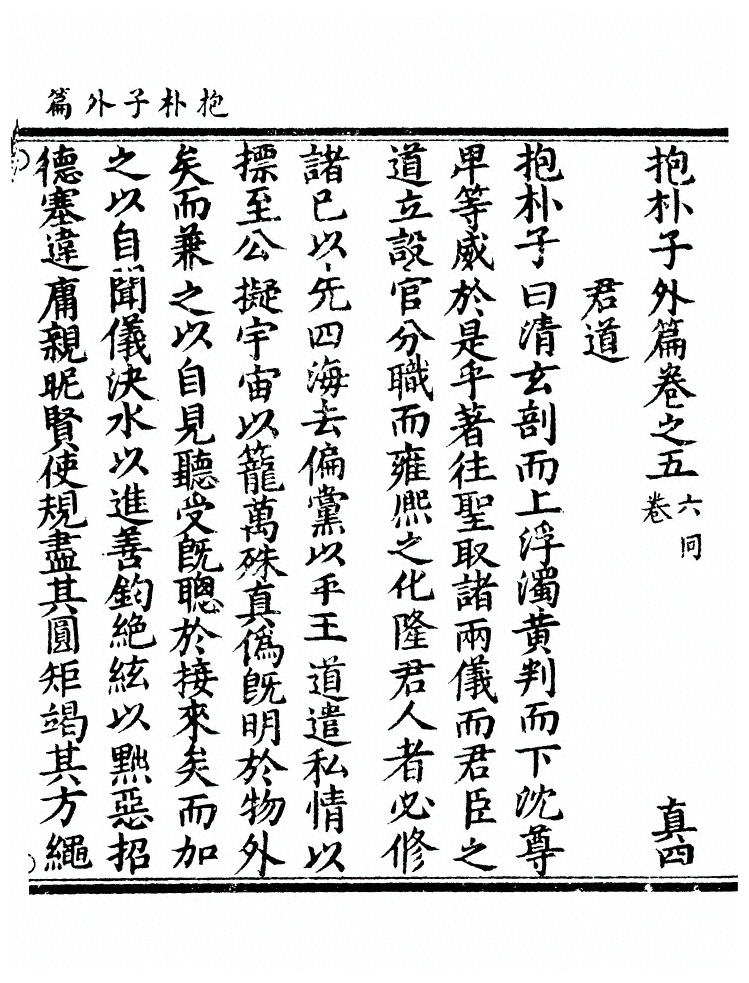 抱朴子外篇
抱朴子外篇卷之五 六同卷 真四
君道
抱朴子曰清玄剖而上浮濁黄判而下沈尊
卑等威於是乎著往聖取諸兩儀而君臣之
道立設官分職而雍熈之化隆君人者必修
諸已以先四海去偏黨以平王道遣私情以
摽至公擬宇宙以籠萬殊真僞既明於物外
矣而兼之以自見聽受既聰於接來矣而加
之以自聞儀決水以進善鈞絶絃以黜惡招
德塞違庸親昵賢使規盡其圓矩竭其方繩